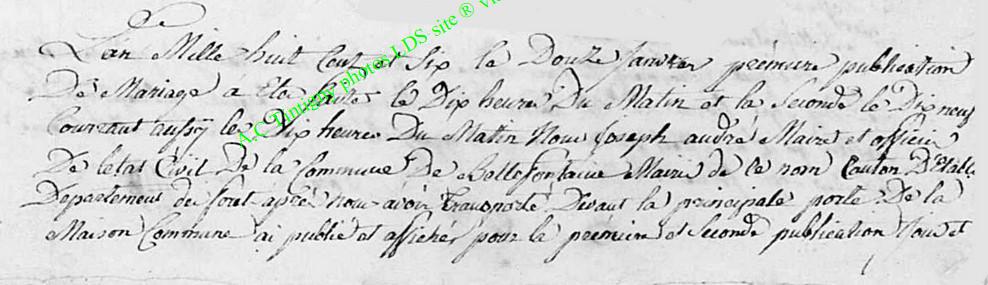 L'an Mille huit Cent et Six le Douze Janvier prémiere publication
De Mariage a Eté faite le Dix heures Du Matin et la Seconde le Dix neuf
Courrant aussy le Dix heures Du Matin Nous Joseph andré Maire et officier
De l'etat Civil De la Commune De Bellefontaine Mairie de ce nom Canton D'Etable
Departement de foret après nous avoir Transporté Devant la principale porte De la
Maison Commune ai publié et affiché pour la prémiere et Seconde publication
A.C Tintigny photos LDS site ®